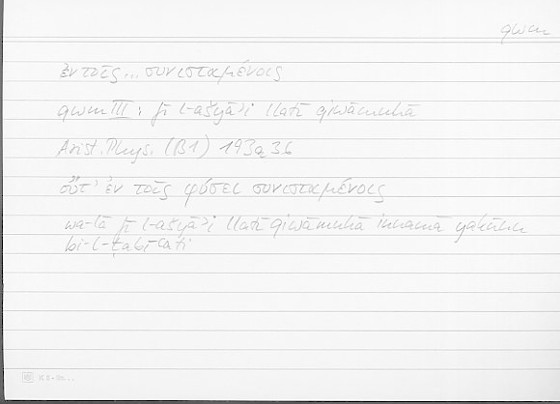 qwm
ἐν τοῖς ... συνισταμένοις
qwm III : fī l-ašyāʾi llatī qiwāmuhā
Arist. Phys. (B1) 193a36
οὔτ' ἐν τοῖς φύσει συνισταμένοις
wa-lā fī l-ašyāʾi llatī qiwāmuhā innamā yakūnu
bi-l-ṭabīʿati